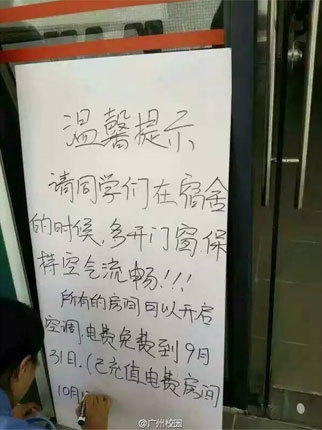 温馨提示
请同学们在宿舍
的时候，多开门窗保
持空气流畅!!!
所有的房间可以开启
空调，电费免费到9月
31日.(已充值电费房间
10月
@广州校园